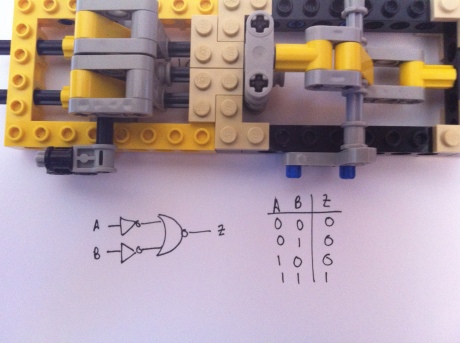 A
B
Z
A B Z
0 0 0
0 1 0
1 0 0
1 1 1